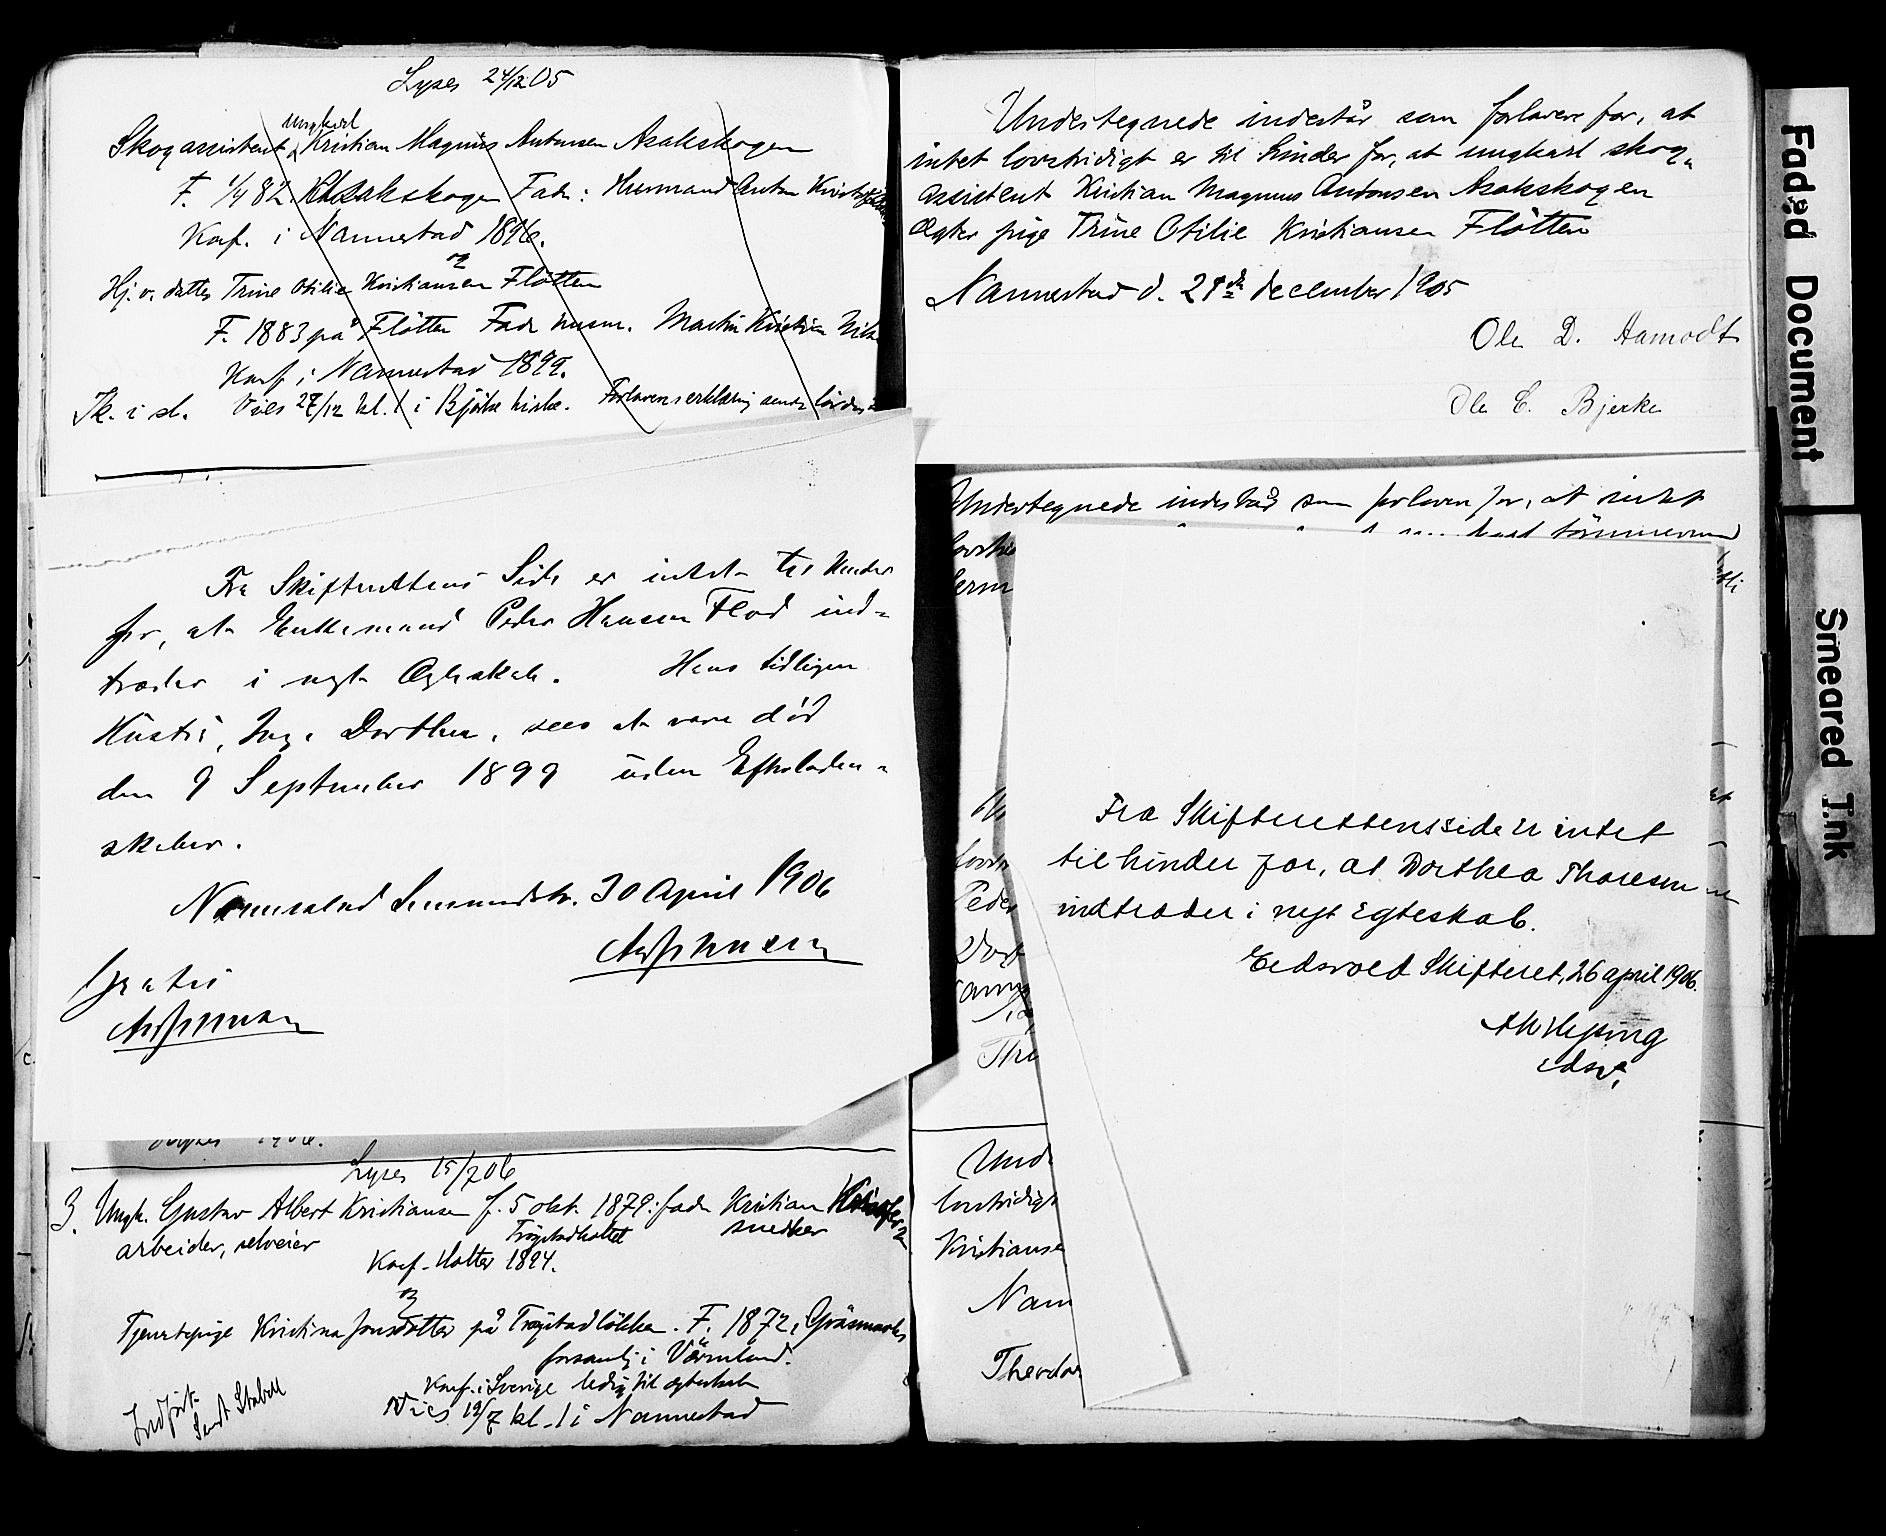 Lyses 24/12 05
ungkarl
Skogassistent Kristian Magnus Antonsen Asakskogen
F. 1/4 82 Asakskogen Fader: Husmand Anton
Konf. i Nannestad 1896.
og
Hj. v. datter Trine Otilie Kristiansen Fløtten
F. 1883 på Fløtten Fader husm. Martin Kristian
Konf. i Nannestad 1899.
Tk. i sk. Vies 27/12 kl. 1 i Bjerke kirke. Forlovererklæring sendes
Undertegnede indestår som forlovere for, at
intet lovstridigt er til hinder for, at ungkarl skog-
assistent Kristian Magnus Antonsen Asakskogen
ægter pige Trine Otilie Kristiansen Fløtten
Nannestad d. 21de december 1905
Ole D. Aamodt
Ole C. Bjerke
Fra Skifterettens Side er intet til Hinder
for, at Enkemand Peder Hansen Flod ind-
træder i nyt Ægteskab. Hans tidligere
Hustru, Inge Dorthea, sees at være død
den 9 September 1899 uden Efterladen-
skaber.
Nannestad Lensmandsk. 30 April 1906
Gratis
Undertegnede indestår som forlovere for, at intet
Peder
Fra Skifterettens side er intet
til hinder for, at Dorthea Thoresen
indtræder i nyt Egteskab.
Eidsvold Skifteret, 26 april 1906.
Lyses 15/7 06
3. Ungk. Gustav Albert Kristiansen f. 5 okt. 1879: fader Kristian
arbeider, selveier Trøgstadholtet snedker
Konf. Holter 1894.
og
Tjenestepige Kristina Jonsdotter på Trøgstadløkken. F. 1872, Gräsmarks
forsamlg i Värmland.
Konf. i Sverige ledig til ægteskab
Vies 19/7 kl. 1 i Nannestad
Indført.
Sendt Stabell
Und
lovstridigt
Kristianse
Nan
Theodor
Faded Document
Smeared Ink